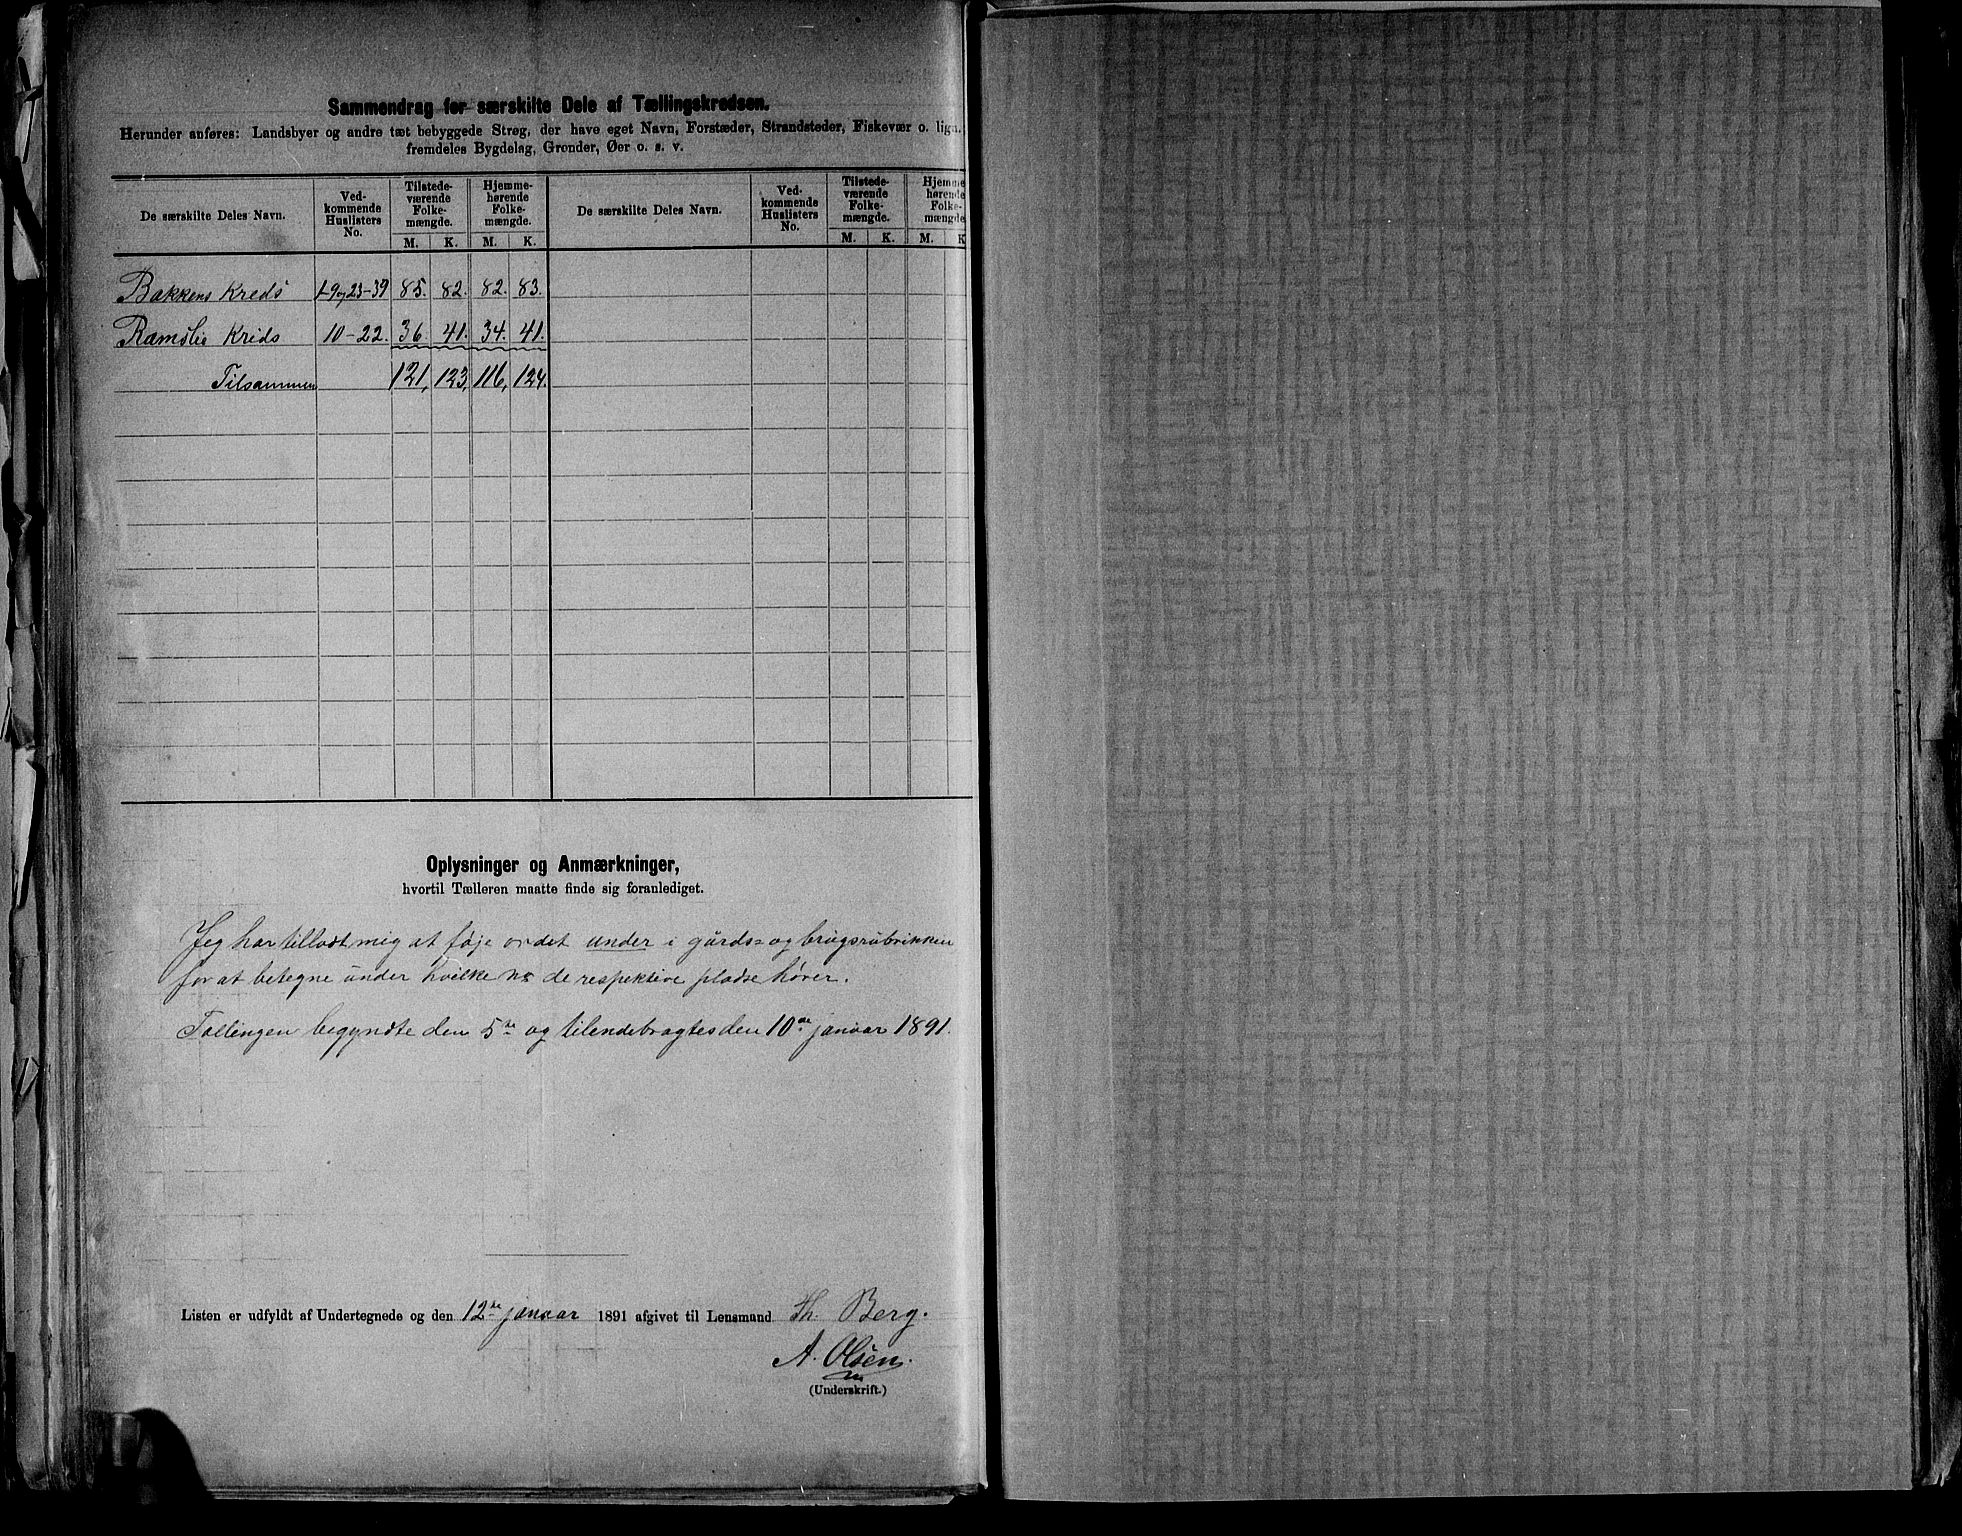 Sammendrag for særskilte Dele af Tællingskredsen.
Herunder anføres: Landsbyer og andre tæt bebyggede Strøg, der have eget Navn, Forstæder, Strandsteder, Fiskevær o. lign.
fremdeles Bygdelag, Grender, Øer o. s. v.
De særskilte Deles Navn. Ved-kommende Huslisters No. Tilstede-værende Folke-mængde. Hjemme-hørende Folke-mængde. De særskilte Deles Navn. Ved-kommende Huslisters No. Tilstede-værende Folke-mængde. Hjemme-hørende Folke-mængde
M. K. M. K. M. K. M. K.
Bakkens Kreds 1-9 og 23-39 85. 82. 82. 83.
Ramslie Kreds 10-22. 36 41. 34. 41.
Tilsammen 121, 123, 116, 124.
Oplysninger og Anmærkninger,
hvortil Tælleren maatte finde sig foranlediget.
Jeg har tilladt mig at føje ordet under i gårds= og brugsrubrikken
for at betegne under hvilke No de respektive pladse hører.
Tællingen begyndte den 5te og tilendebragtes den 10de januar 1891.
Listen er udfyldt af Undertegnede og den 12te januar 1891 afgivet til Lensmand Th. Berg.
A. Olsen.
(Underskrift.)